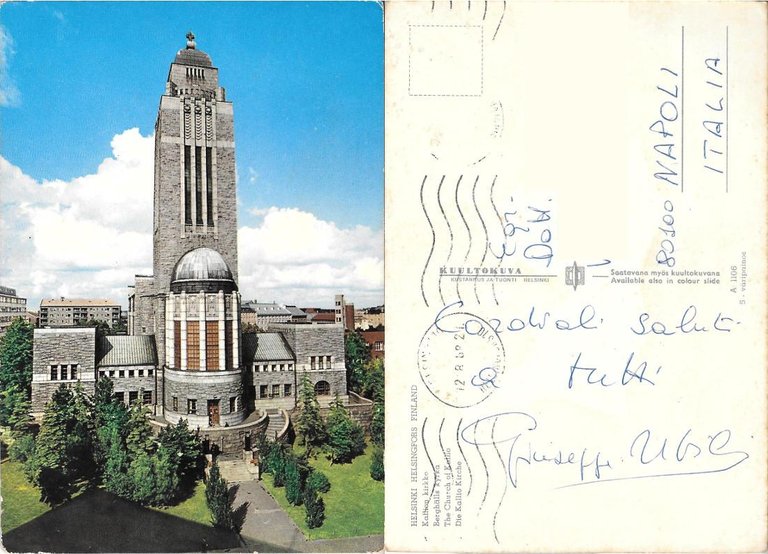 Egr.
Dott.
80100 NAPOLI
ITALIA
KUULTOKUVA
KUSTANNUS JA TUONTI HELSINKI
Saatavana myös kuultokuvana
Available also in colour slide
A 1106
S - varipaino
Cordiali saluti
a tutti
Giuseppe
HELSINKI HELSINGFORS FINLAND
Kallion kirkko
Berghälls kyrka
The Church of Kallio
Die Kallio Kirche